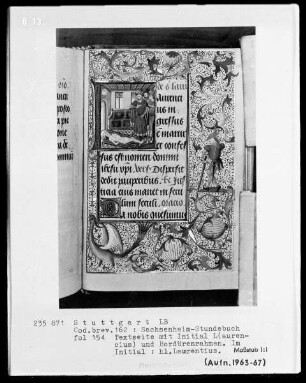 de s laur
aurenci
us in
gressus
e martir
et confes
sus est nomen domini
ihesu xpi. Vers. Dispersit
dedit pauperibus. Jus
titia eius manet in secu
lum seculi. oracio
Da nobis quesumus
235 871 Stuttgart LB
Cod.brev.162 : Sachsenheim-Stundebuch
fol 154 Textseite mit Initial L(auren-
cius) und Bordürenrahmen. Im
Initial : hl.Laurentius. Maßstab 1:1
(Aufn.1963-67)